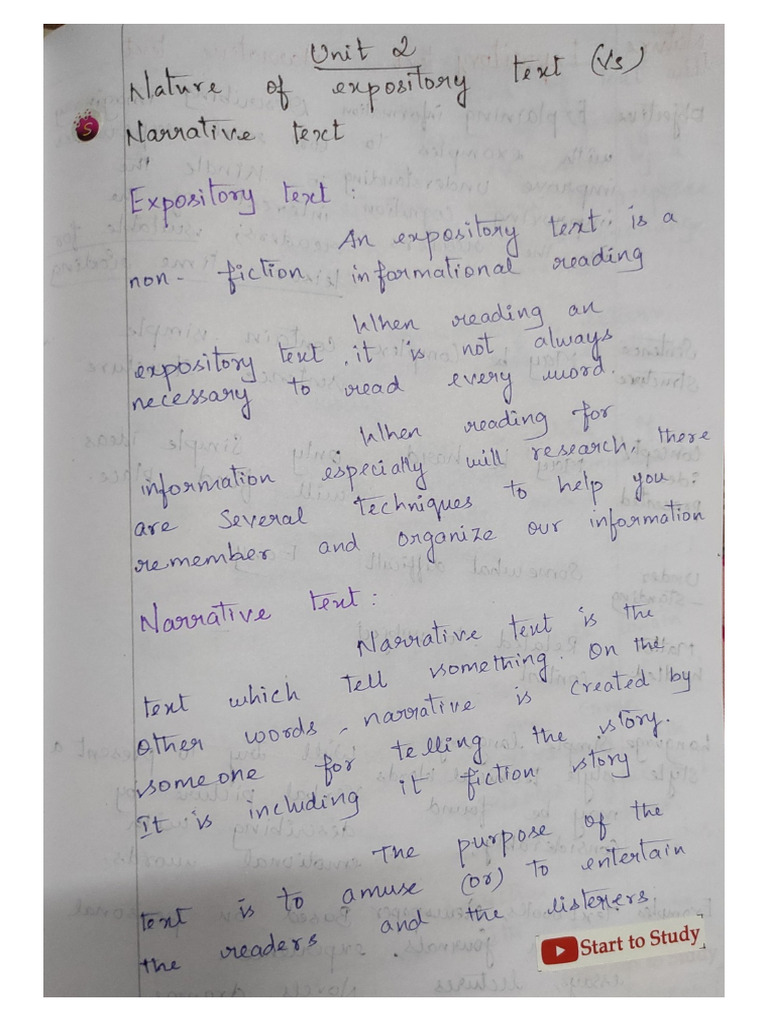 Unit 2
Nature of expository text (Vs)
Narrative text
Expository text :
An expository text is a
non- fiction informational reading
When reading an
expository text, it is not always
necessary to read every word.
When reading for
information especially will research, there
are several techniques to help you
remember and organize our information
Narrative text :
Narrative text is the
text which tell something. On the
other words, narrative is created by
someone for telling the story.
It is including it fiction story
The purpose of the
text is to amuse (or) to entertain
the readers and the listeners.
S
Start to Study